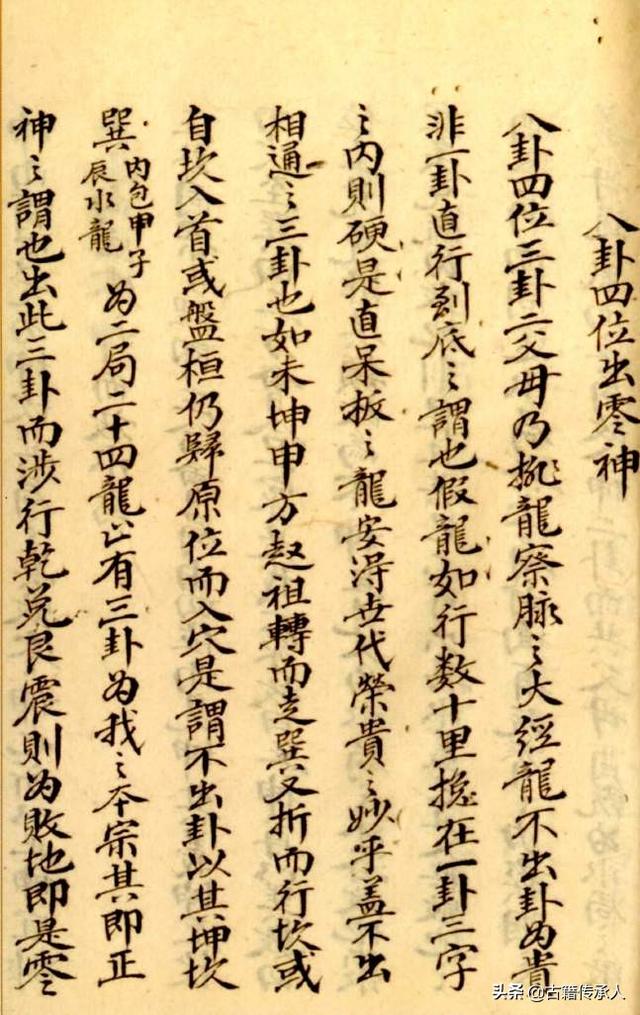 八卦四位出零神
八卦四位三卦二父母乃挨龍察脉之大經龍不出卦為貴
非一卦直行到底之謂也假龍如行数十里揔在一卦三字
之内則硬是直呆板之龍安得世代榮貴之妙乎盖不出
相通之三卦也如未坤申方起祖轉而走巽又折而行坎或
自坎入首或盤桓仍歸原位而入穴是謂不出卦以其坤坎
巽内包甲子辰水龍为二局二十四龍止有三卦为我之本宗其即正
神之謂也出此三卦而涉行乾兑艮震則为敗地即是零
头条 @古籍传承人